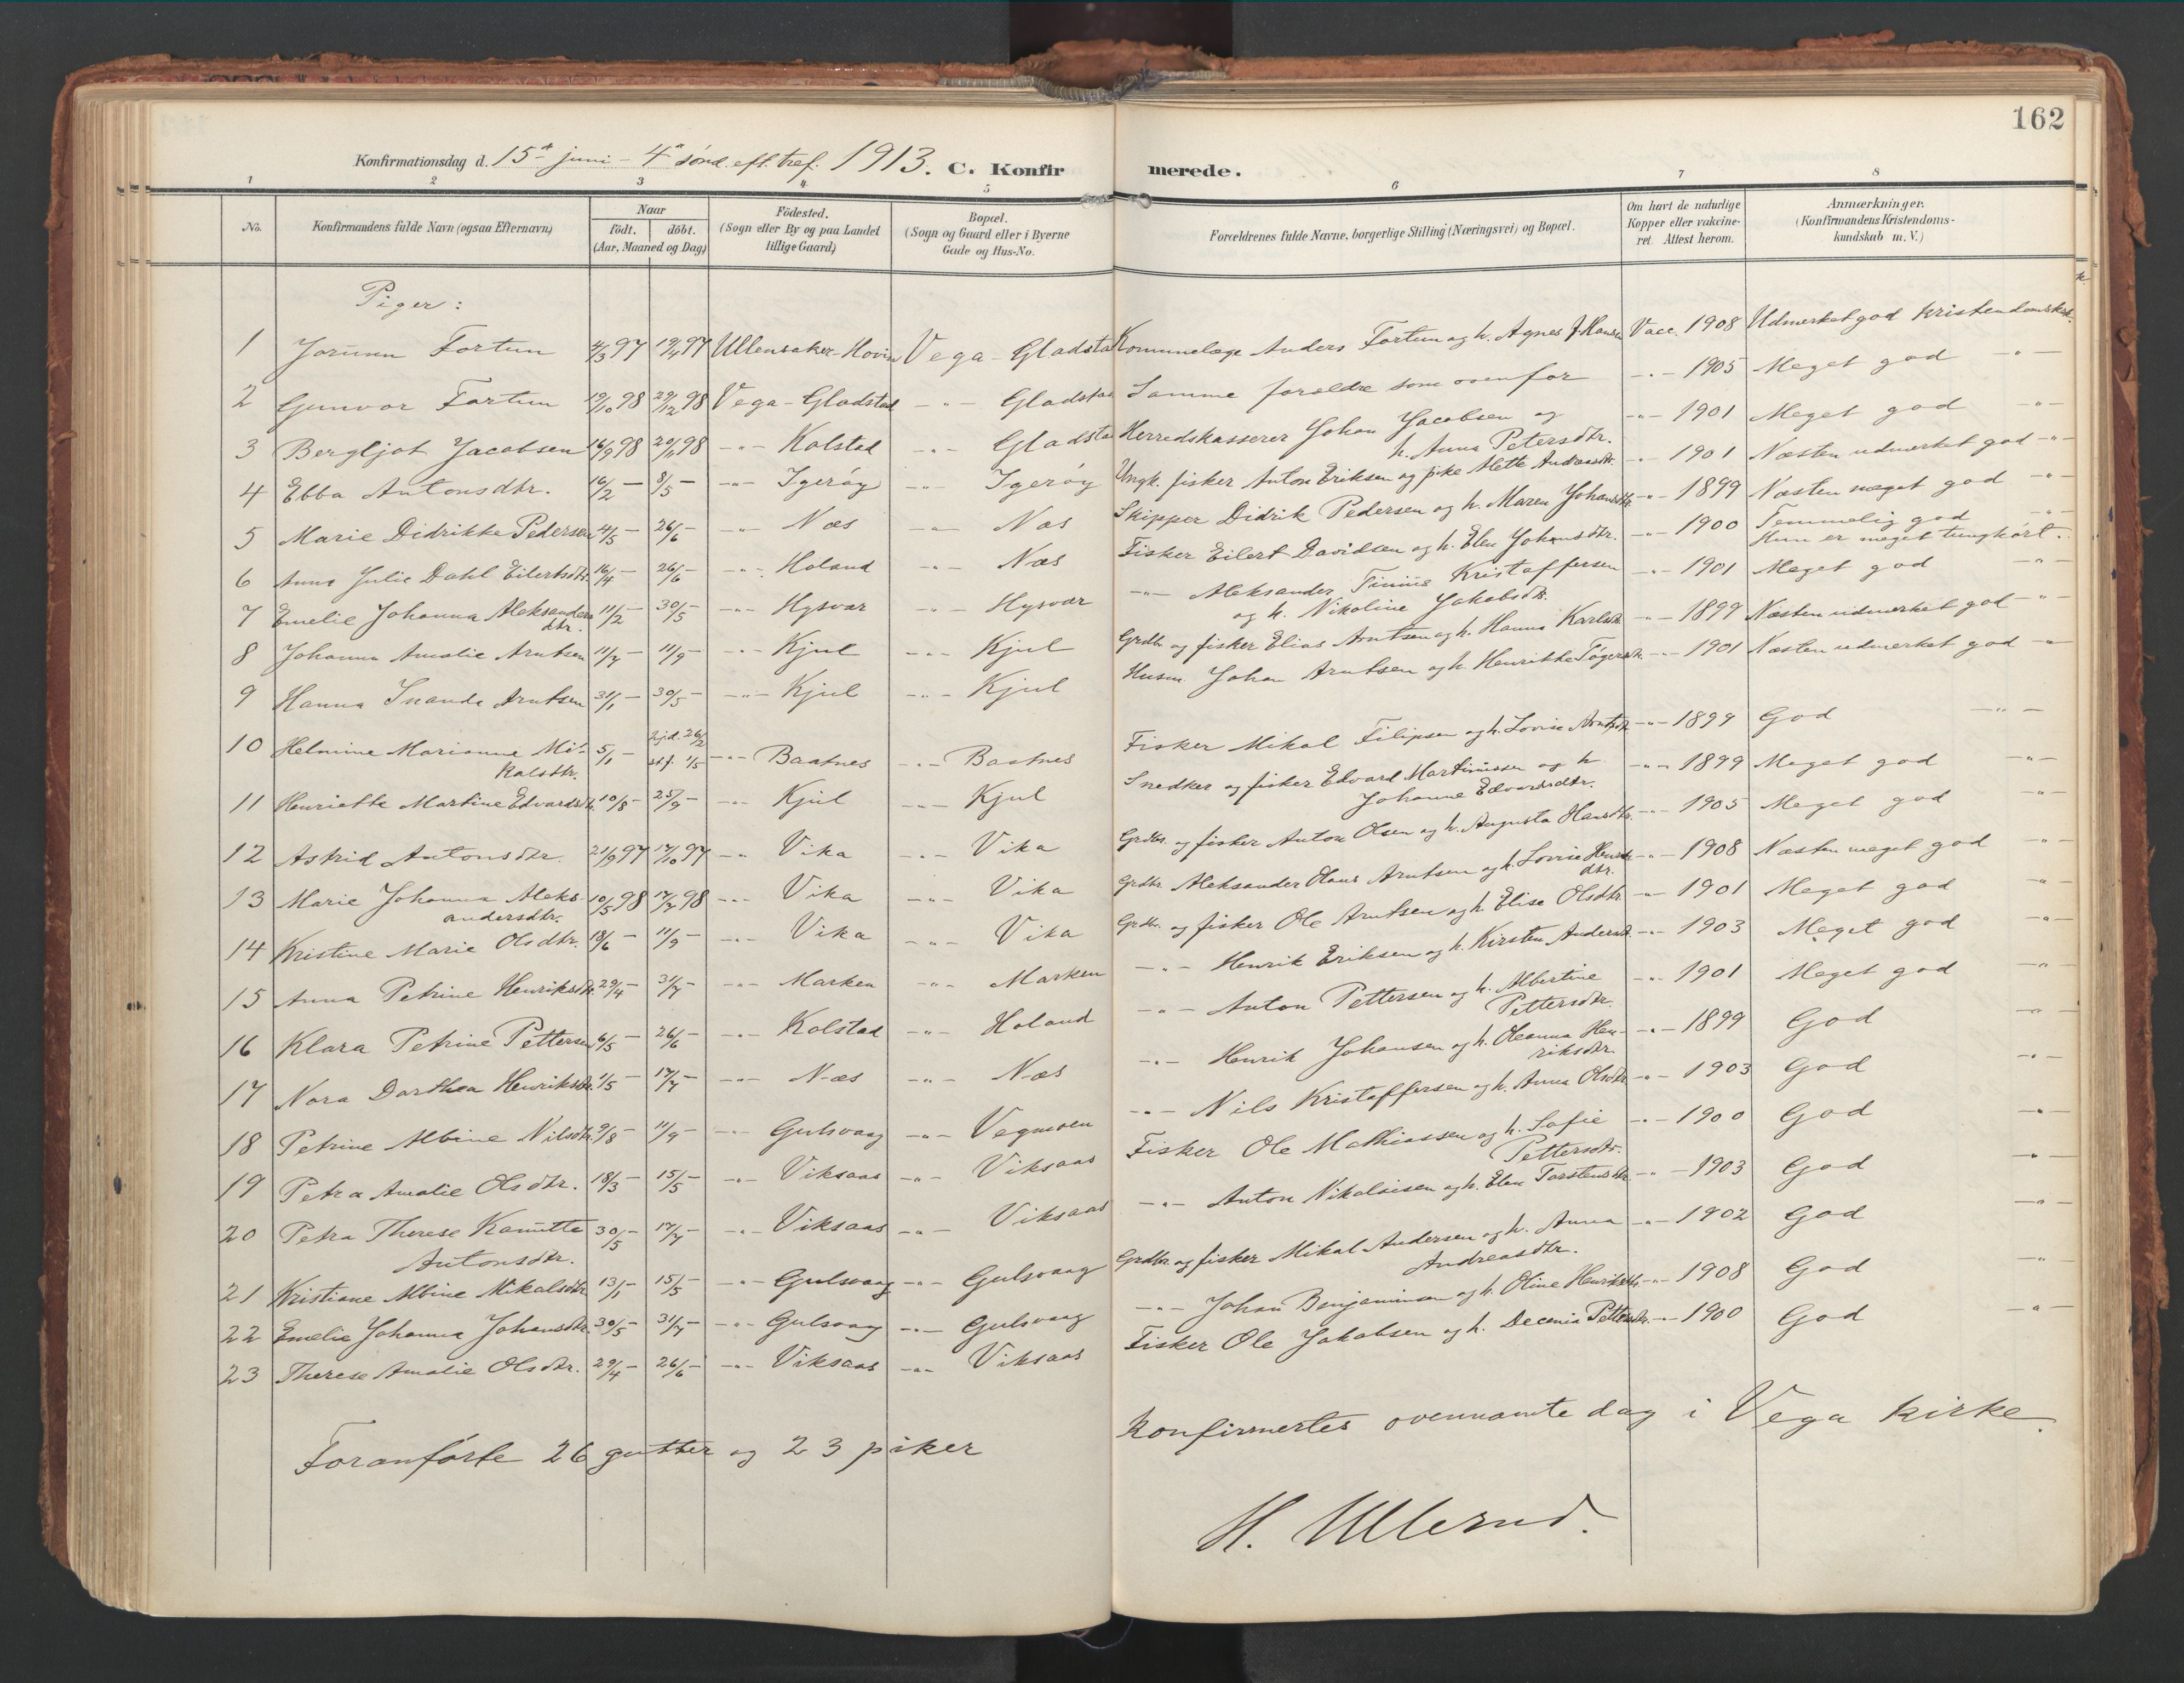 162
Konfirmationsdag d. 15de juni - 4de sönd. eft. tref. 1913. C. Konfirmerede.
1 2 3 4 5 6 7 8
No. Konfirmandens fulde Navn (ogsaa Efternavn) Naar födt. döbt. (Aar, Maaned og Dag) Födested. (Sogn eller By og paa Landet tillige Gaard) Bopæl. (Sogn og Gaard eller i Byerne Gade og Hus-No. Forældrenes fulde Navne, borgerlige Stilling (Næringsvei) og Bopæl. Om havt de naturlige Kopper eller vakcineret. Attest herom. Anmærkninger. (Konfirmandens Kristendomskundskab m. V.)
Piger:
1 Jorunn Fortun 4/3 97 19/4 97 Ullensaker-Hovin Vega - Gladstad Kommunelæge Anders Fortun og h. Agnes J. Hansen Vacc. 1908 Udmerket god kristendomsk.
2 Gunvor Fortun 19/10 98 29/12 98 Vega - Gladstad -"- Gladstad Samme foreldre som ovenfor -"- 1905 Meget god -"-
3 Bergljot Jacobsen 16/9 98 20/11 98 -"- Kolstad -"- Gladstad Herredskasserer Johan Jacobsen og h. Anna Petersdtr. -"- 1901 Meget god -"-
4 Ebba Antonsdtr. 16/2 - 8/5 - -"- Igerøy -"- Igerøy Ungk. fisker Anton Eriksen og pike Alette Andreasdtr. -"- 1901 Næsten udmerket god -"-
5 Marie Didrikke Pedersen 4/5 - 26/6 -"- Næs -"- Næs Skipper Didrik Pedersen og h. Maren Johansdtr. -"- 1899 Næsten meget god -"-
6 Anna Julie Dahl Eilertsdtr. 16/4 - 26/6 - -"- Holand -"- Næs Fisker Eilert Davidsen og h. Elen Johansdtr. -"- 1900 Temmelig god -"- Hun er meget tunghørt.
7 Emelie Johanna Aleksandersdtr. 11/2 - 30/5 - -"- Hysvær -"- Hysvær -"- Aleksander Tinius Kristoffersen og h. Nikoline Jakobsdtr. -"- 1901 Meget god -"-
8 Johanna Amalie Arntsen 11/7 - 11/9 - -"- Kjul -"- Kjul Grdbr. og fisker Elias Arntsen og h. Hanna Karlsdtr. -"- 1899 Næsten udmerket god -"-
9 Hanna Inanda Arntsen 31/1 - 30/5 - -"- Kjul -"- Kjul Husm. Johan Arntsen og h. Henrikke Tøgersdtr. -"- 1901 Næsten udmerket god -"-
10 Helmine Marianne Mikalsdtr. 5/1 - hjd. 26/2 stf. 1/5 -"- Baatnes -"- Baatnes Fisker Mikal Filipsen og h. Lovise Arntsdtr. -"- 1899 God -"-
11 Henriette Martine Edvardsdtr. 10/8 - 25/9 - -"- Kjul -"- Kjul Snedker og fisker Edvard Martinussen og h. Johanne Edvardsdtr. -"- 1899 Meget god -"-
12 Astrid Antonsdtr. 21/9 97 17/10 97 -"- Vika -"- Vika Grdbr. og fisker Anton Olsen og h. Augusta Hansdtr. -"- 1905 Meget god -"-
13 Marie Johanna Aleksandersdtr. 10/5 98 17/7 98 -"- Vika -"- Vika Grdbr. Aleksander Olaus Arntsen og h. Lovise Hansdtr. -"- 1908 Næsten meget god -"-
14 Kristine Marie Olsdtr. 18/6 - 11/9 - -"- Vika -"- Vika Grdbr. og fisker Ole Arntsen og h. Elise Olsdtr. -"- 1901 Meget god -"-
15 Anna Petrine Henriksdtr. 29/4 31/7 - -"- Marken -"- Marken -"- Henrik Eriksen og h. Kirsten Andersdtr. -"- 1903 Meget god -"-
16 Klara Petrine Pettersen 6/5 - 26/6 - -"- Kolstad -"- Holand -"- Anton Pettersen og h. Albertine Pettersdtr. -"- 1901 Meget god -"-
17 Nora Dorthea Henriksdtr. 1/5 - 17/7 - -"- Næs -"- Næs -"- Henrik Johansen og h. Oleanna Henriksdtr. -"- 1899 God -"-
18 Petrine Albine Nilsdtr. 9/8 - 11/9 - -"- Gulsvaag -"- Vegmoen -"- Nils Kristoffersen og h. Anna Olsdtr. -"- 1903 God -"-
19 Petra Amalie Olsdtr. 18/3 - 15/5 - -"- Viksaas -"- Viksaas Fisker Ole Mathiassen og h. Sofie Pettersdtr. -"- 1900 God -"-
20 Petra Therese Kamitta Antonsdtr. 30/5 - 17/7 - -"- Viksaas -"- Viksaas -"- Anton Nikolaisen og h. Elen Torstensdtr. -"- 1903 God -"-
21 Kristiane Albine Mikalsdtr. 13/1 - 15/5 - -"- Gulsvaag -"- Gulsvaag Grdbr. og fisker Mikal Andersen og h. Anna Andreasdtr. -"- 1902 God -"-
22 Emelie Johanna Johansdtr. 30/5 - 31/7 - -"- Gulsvaag -"- Gulsvaag -"- Johan Benjaminsen og h. Oline Henriksdtr. -"- 1908 God -"-
23 Therese Amalie Olsdtr. 29/4 - 26/6 - -"- Viksaas -"- Viksaas Fisker Ole Jakobsen og h. Decenia Pettersdtr. -"- 1900 God -"-
Foranførte 26 gutter og 23 piker konfirmertes ovennævnte dag i Vega kirke.
H. Ullerud.